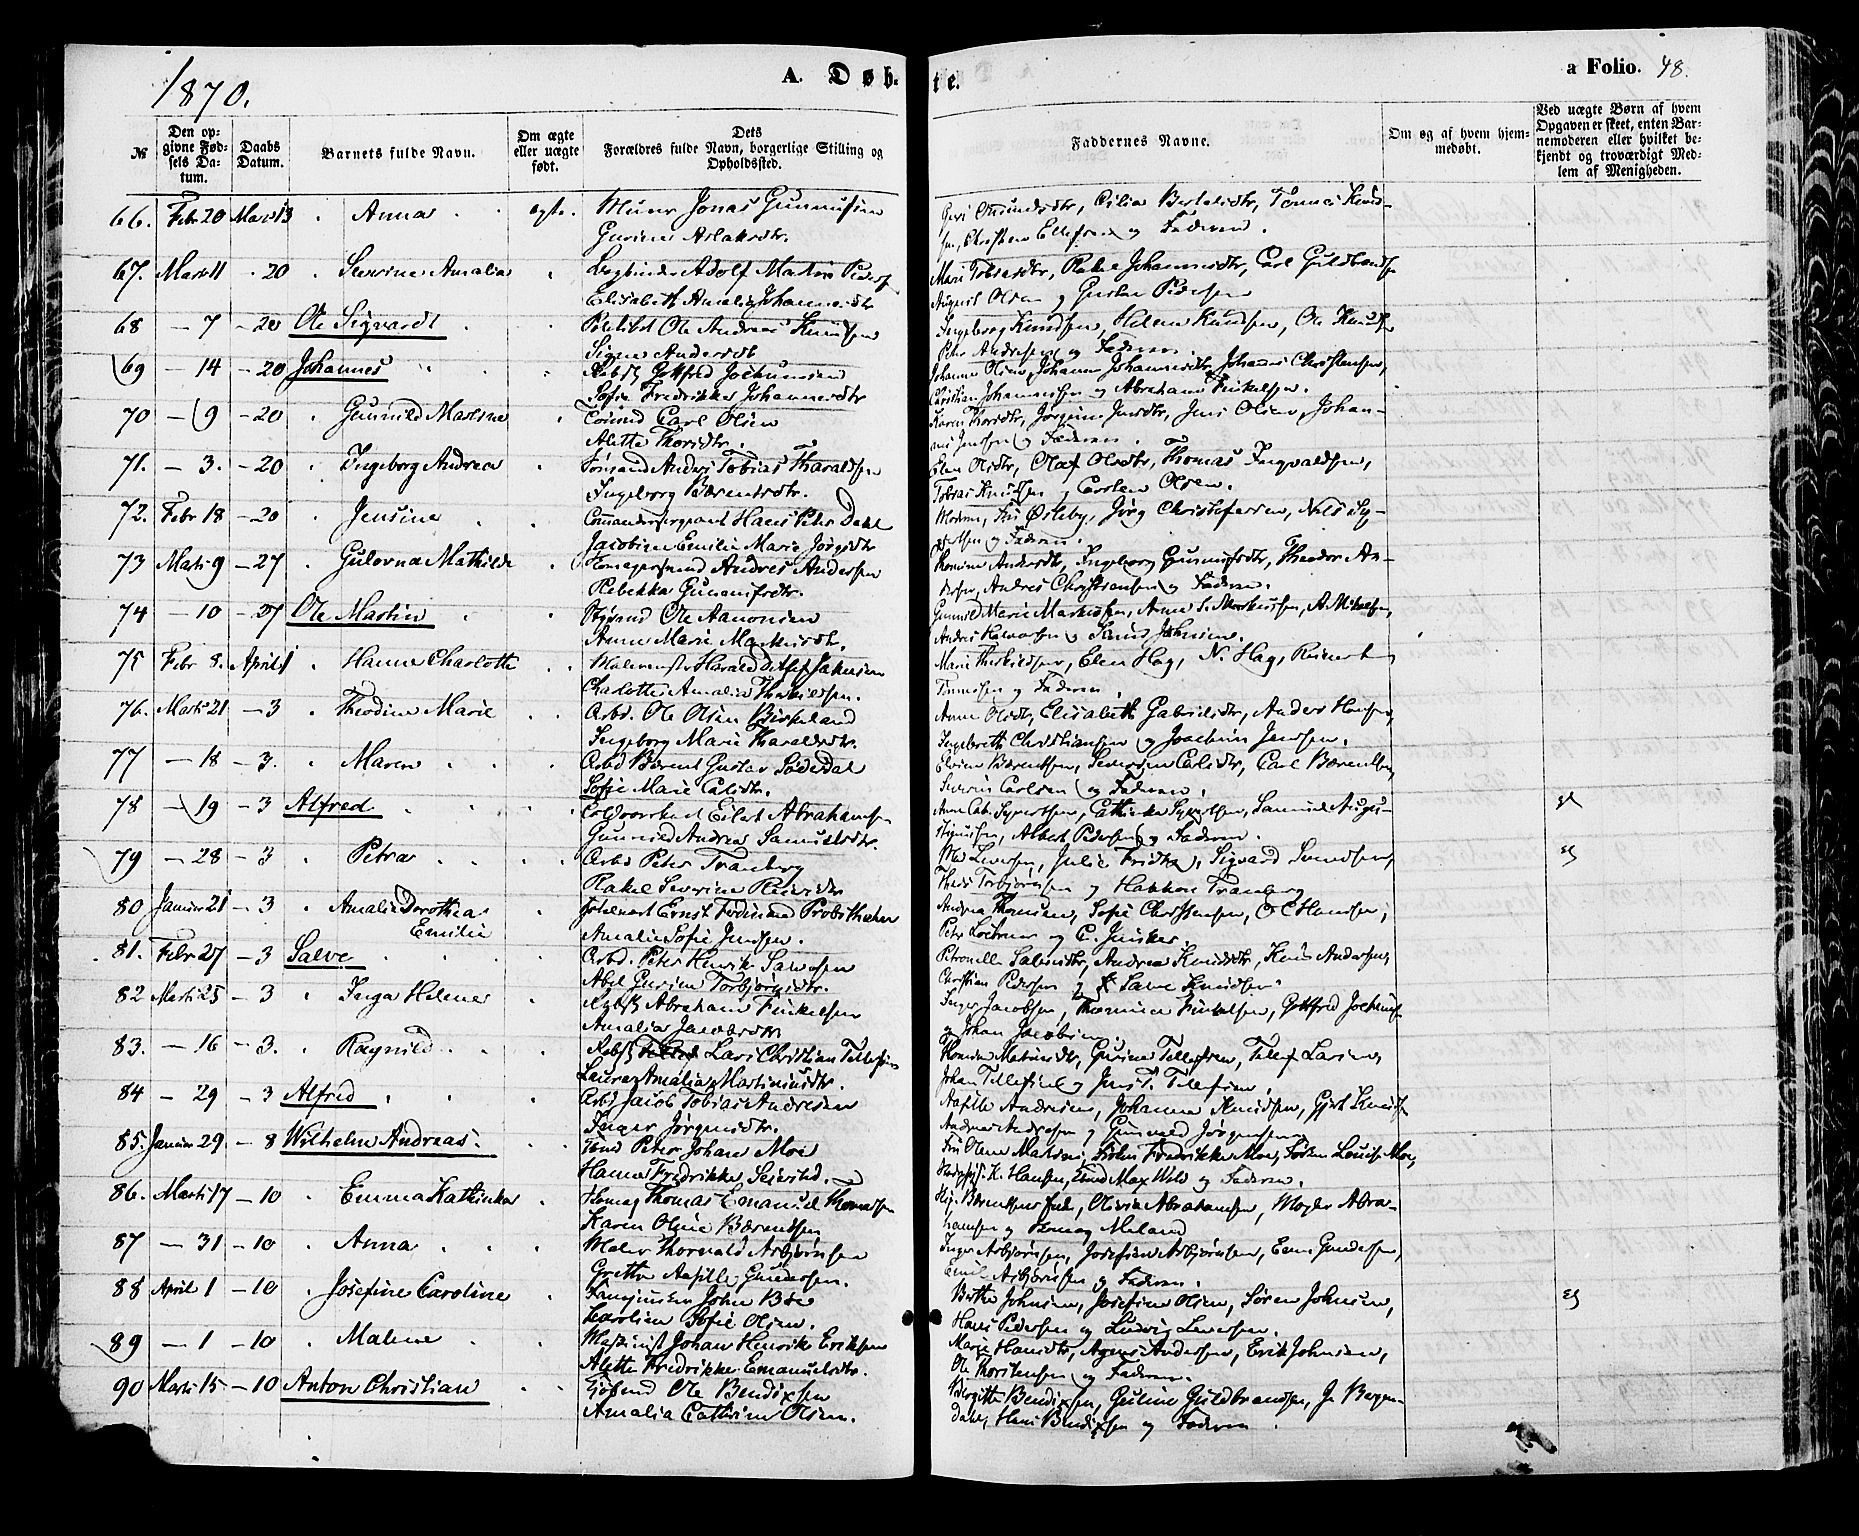 1870.
A. Døb-
te.
a Folio. 48.
№
Den op-
givne Fød-
sels Da-
tum.
Daabs
Datum.
Barnets fulde Navn.
Om ægte
eller uægte
født.
Dets
Forældres fulde Navn, borgerlige Stilling og
Opholdssted.
Faddernes Navne.
Om og af hvem hjem-
medøbt.
Ved uægte Børn af hvem
Opgaven er skeet, enten Bar-
nemoderen eller hvilket be-
kjendt og troværdigt Med-
lem af Menigheden.
66. Febr 20 Marts 13 Anna ægte. Murer Jonas Gunnufsen
Gurine Aslaksdtr.
og Faderen.
67. Marts 11 - 20 Severine Amalia Adolf Martin Peders
Elisabeth Amalia Johannesdtr
Marie Tobiasdtr, Rakel Johannesdtr, Carl Guldbrandse
August Olsen og Gustav Pedersen
68 - 7 - 20 Ole Sigvardt Ole Andreas Knudsen
Signe Andersdt
Ingeborg Knudsen, Helene Knudsen, Ole Knudsen
Peter Andersen og Faderen.
69 - 14 - 20 Johannes Gottfred Jochumsen
Sofie Fredrikke Johannesdtr
Johanne Olsen, Johanne Johannesdtr, Johannes Christensen,
Christian Johannessen og Abraham Finkelsen.
70 - 9 - 20 Gunnild Martine Carl Olsen
Alette Thorsdtr.
Karen Thorsdtr, Jørgine Jensdtr, Jens Olsen, Johan-
nes Jenssen og Faderen.
71. - 3. - 20 Ingeborg Andrea Tømmand Anders Tobias Haraldsen
Ingeborg Bærentsdtr.
Elen Olsdtr, Olaf Olsdtr, Thomas Ingvaldsen,
Tobias Knudsen og Carsten Olsen.
72. Febr 18 - 20 Jensine Commandersergeant Hans Peter Dahl
Jacobine Emilie Marie Jørgsdtr
Moderen, Jørg Christofersen, Nils Sy-
vertsen og Faderen.
73 Marts 9 - 27 Gulovna Mathilde Andres Andersen
Rebekka Gunnufsdtr.
Ingeborg Gunnufsdtr, Theodor An-
dersen, Andres Christiansen og Faderen.
74 - 10 - 27 Ole Martin Styrmand Ole Aanonsen
Anne Marie Markusdtr.
Gunnild Marie Markussen, Anne S. Markussen, A. Mikkelsen,
Andres Halvorsen og Knud Johnsen.
75 Febr 8. April 1 Hanne Charlotte Malermester Harald Detlef Jakobsen
Charlotte Amalia Therkildsen.
Marie Therkildsen, Elen Hag, N. Hag, Reinert
og Faderen.
76. Marts 21 - 3 Theodine Marie Arbd. Ole Olsen Birkeland
Ingeborg Marie Haraldsdtr.
Anne Olsdtr, Elisabeth Gabrielsdtr, Anders Hansen,
Ingebreth Christiansen og Joachim Jenssen.
77 - 18 - 3. Maren Arbd Bærent Gustav Sødedal
Sofie Marie Carlsdtr.
Elvine Bærentsen, Severine Carlsdtr, Carl Bærentsen
Severin Carlsen og Faderen.
78 - 19 - 3 Alfred Eilert Abrahamsen
Gunnild Andrea Samuelsdtr.
Anne Cat. Syvertsen, Cathinka Syvertsen, Samuel Augus-
tinussen, Albert Pedersen og Faderen.
79 - 28 - 3 Petra Arbd Peter Tranberg
Rakel Severine Reiersdtr
Julie Fridtz, Sigvard Svendsen,
Torbjørnsen og Haakon Tranberg
80 Januar 21 - 3 Amalie Dorothea
Emilie
Ernst Ferdinand Probsthahn
Amalie Sofie Jenssen.
Andrea Thomsen, Sofie Christensen, O C Hansen,
og C. Junker.
81. Febr 27 - 3 Salve Arbd. Peter Henrik Salvesen
Abel Gurine Torbjørnsdtr.
Petronelle Salvesdtr, Andrea Knudsdtr, Knud Andersen,
Christian Pedersen og Salve Knudsen.
82 Marts 25 - 3 Inga Helene Abraham Finkelsen
Amalia Jacobsdtr
Inger Jacobsen, Finkelsen, Gottfred Jochums
og Johan Jacobsen.
83. - 16 - 3. Ragnild Lars Christian Tellefsen
Laura Amalia Martiniusdtr.
Gurine Tellefsen, Tellef Larsen,
Johan Tellefsen og Jens T. Tellefsen.
84 - 29 - 3 Alfred Arbd Jacob Tobias Andresen
Inger Jørgensdtr.
Aasille Andresen, Johanne Knudsen, Gjert Knudsen
Andreas Andresen og Gunvald Jørgensen
85. Januar 29 - 8 Wilhelm Andreas. Peter Johan Moe
Hanne Fredrikke Seiersted.
Fredrikke Moe, Frøken Louise Moe,
K. Hansen, Max Wold og Faderen.
86. Marts 17 - 10 Emma Kathinka Thomas Emanuel Thomassen
Karen Oline Bærentsen
Olivia Abrahamsen, Abra-
hamsen og Meland
87 - 31 - 10 Anna Maler Thorvald Asbjørnsen
Grethe Aasille Gundersen.
Inger Asbjørnsen, Josefine Asbjørnsen, Even Gundersen,
Emil Asbjørnsen og Faderen.
88 April 1 - 10 Josefine Caroline John Bøe
Karoline Sofie Olsen.
Berthe Johnsen, Josefine Olsen, Søren Johnsen,
Hans Pedersen og Ludvig Leversen.
89 - 1 - 10 Malene Maskinist Johan Henrik Eriksen
Alette Fredrikke Emanuelsdtr.
Marie Hansdtr, Agnes Andersen, Erik Johnsen,
Ole Thorstensen og Faderen.
90 Marts 15 - 10 Anton Christian Ole Bendixsen
Amalia Cathrine Olsen.
Birgitte Bendixsen, Guline Guldbrandsen, J. Bergen-
dahl, Hans Bendixsen og Faderen